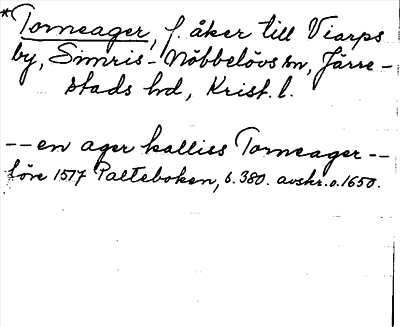 *Torneager, f. åker till Viarps
by, Simris-Nöbbelövs sn, Järre-
stads hd, Krist. l.
--en ager kalliss Torneager--
före 1517 Palteboken, s. 380. avskr. o. 1650.